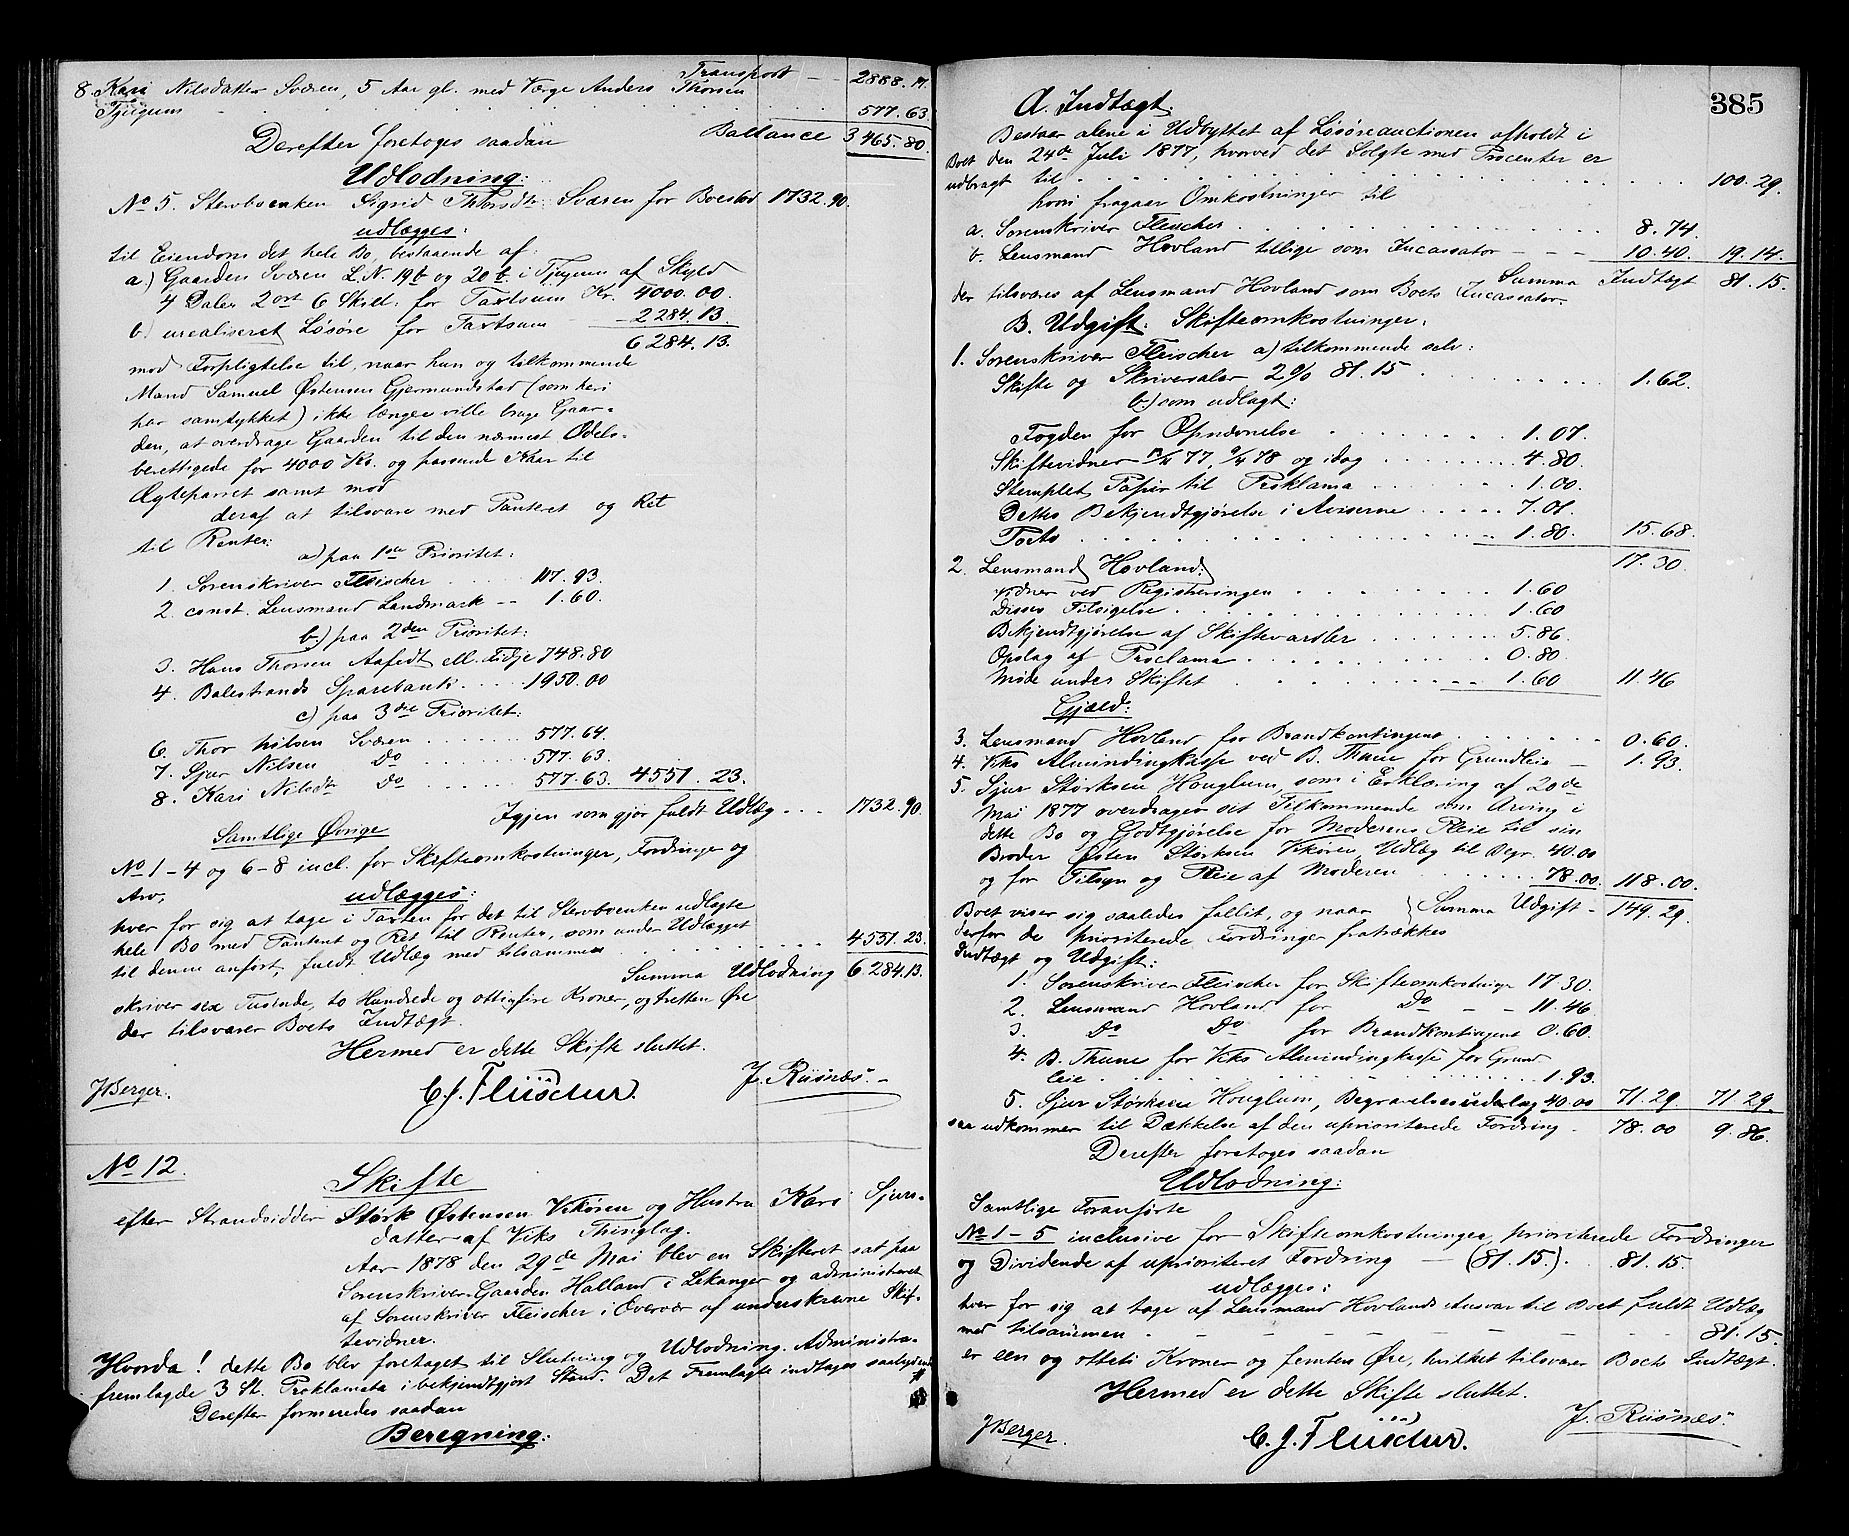 Transport — 2888.17.
8 Kari Nilsdatter Sværen, 5 Aar gl. med Værge Anders Thorsen
Tjugum . . . . . . . . 577.63.
Ballance 3465.80.
Derefter foretoges saadan
Udlodning:
No 5. Stervboenken Sigrid Thorsdtr. Sværen for Boeslod 1732.90.
udlægges:
til Eiendom det hele Bo, bestaaende af:
a) Gaarden Sværen L.N. 19b og 20b i Tjugum af Skyld
4 Daler 2 ort 6 Skill. for Taxtsum Kr. 4000.00.
b) urealiseret Løsøre for Taxtsum — 2284.13.
6284.13.
mod Forpligtelse til, naar hun og tilkommende
Mand Samuel Østensen Gjermundstad (som heri
har samtykket) ikke længer ville bruge Gaar-
den, at overdrage Gaarden til den nærmest Odels-
berettigede for 4000 Kr. og passende Kaar til
Ægteparret samt mod
deraf at tilsvare med Panteret og Ret
til Renter:
a) paa 1ste Prioritet:
1. Sorenskriver Fleischer . . . . 117.93.
2. const. Lensmand Landmark — 1.60.
b.) paa 2den Prioritet:
3. Hans Thorsen Aafedt ell. Tidje 748.80
4. Balestrands Sparebank . . . . 1950.00
c) paa 3die Prioritet:
6. Thor Nilsen Sværen . . . . . 577.64.
7. Sjur Nilsen Do . . . . . 577.63.
8. Kari Nilsdtr Do . . . . . 577.63. 4551.23.
Igjen som gjør fuldt Udlæg . . . 1732.90.
Samtlige Øvrige
No 1 – 4 og 6 – 8 incl. for Skifteomkostninger, Fordringer og
Arv,
udlægges:
hver for sig at tage i Taxten for det til Stervboenken udlagte
hele Bo med Panteret og Ret til Renter, som under Udlægget
til denne anført, fuldt Udlæg med tilsammen . . . . . 4551.23.
Summa Udlodning 6284.13.
skriver sex Tusinde, to Hundrede og ottifire Kroner, og tretten Øre
der tilsvarer Boets Indtægt.
Hermed er dette Skifte sluttet.
J Berger. C. J. Fleischer. J. Risnæs.
No 12.
Skifte
efter Strandsidder Størk Østensen Vikøren og Hustru Kari Sjurs-
datter af Viks Thinglag.
Aar 1878 den 29de Mai blev en Skifteret sat paa
Sorenskriver-Gaarden Halland i Lekanger og administreret
af Sorenskriver Fleischer i Overvær af underskrevne Skif-
tevidner.
Hvorda! dette Bo blev foretaget til Slutning og Udlodning. Administra-
fremlagde 3 St. Proklamata i bekjendtgjort Stand. Det Fremlagte indtages saalydende
Derefter formeredes saadan
Beregning:
385
A. Indtægt.
Bestaar alene i Udbyttet af Løsøreauctionen afholdt i
Boet den 24de Juli 1877, hvorved det Solgte med Procenter er
udbragt til . . . . . . . . . 100.29.
hvori fragaar Omkostninger til
a. Sorenskriver Fleischer . . . . . . . . 8.74.
b. Lensmand Hovland tillige som Incassator — — — 10.40. 19.14.
Summa Indtægt 81.15.
der tilsvares af Lensmand Hovland som Boets Incassator
B. Udgift. Skifteomkostninger:
1. Sorenskriver Fleischer a) tilkommende selv:
Skifte og Skriversalær 2% 81.15 . . . . . . . 1.62.
b.) som udlagt:
Fogden for Opnævnelse . . . . . . 1.07.
Skiftevidner 77, 78 og idag . . . . . . 4.80.
Stemplet Papir til Proklama . . . . . 1.00.
Dettes Bekjendtgjørelse i Aviserne . . . . . 7.01.
Porto . . . . . . . . . . 1.80. 15.68.
17.30.
2. Lensmand Hovland:
Vidner ved Registreringen . . . . . . 1.60
Disses Tilsigelse . . . . . . . . 1.60
Bekjendtgjørelse af Skiftevarsler . . . . . . 5.86.
Opslag af Proclama . . . . . . . 0.80.
Møde under Skiftet . . . . . . . 1.60 11.46
Gjæld:
3. Lensmand Hovland for Brandkontingent . . . . . . 0.60.
4. Viks Almindingkasse ved B. Thune for Grundleie — 1.93.
5. Sjur Størksen Houglum, som i Erklæring af 20de
Mai 1877 overdrager det Tilkommende som Arving i
dette Bo og Godtgjørelse for Moderens Pleie til sin
Broder Østen Størksen Vikøren Udlæg til Begr. 40.00
og for Tilsyn og Pleie af Moderen . . . . . 78.00. 118.00.
Summa Udgift – 149.29.
Boet viser sig saaledes fallit, og naar
derfor de prioriterede Fordringer fratrækkes
Indtægt og Udgift:
1. Sorenskriver Fleischer for Skifteomkostninger 17.30.
2. Lensmand Hovland for Do — — 11.46.
3. Do Do for Brandkontingent 0.60.
4. B. Thune for Viks Almindingkasse for Grund
leie . . . . . . . . . . . 1.93.
5. Sjur Størksen Houglum, Begravelsesudlæg 40.00 71.29. 71.29.
saa udkommer til Dækkelse af den uprioriterede Fordring . 78.00 9.86.
Derefter foretoges saadan
Udlodning:
Samtlige Foranførte
No 1 – 5 inclusive for Skifteomkostninger, prioriterede Fordringer
og Dividende af uprioriteret Fordring — (81.15.) . 81.15.
udlægges:
hver for sig at tage af Lensmand Hovlands Ansvar til Boet fuldt Udlæg
med tilsammen — — — — — — — — 81.15.
er een og otteti Kroner og femten Øre, hvilket tilsvarer Boets Indtægt.
Hermed er dette Skifte sluttet.
J Berger. C. J. Fleischer. J. Risnæs.